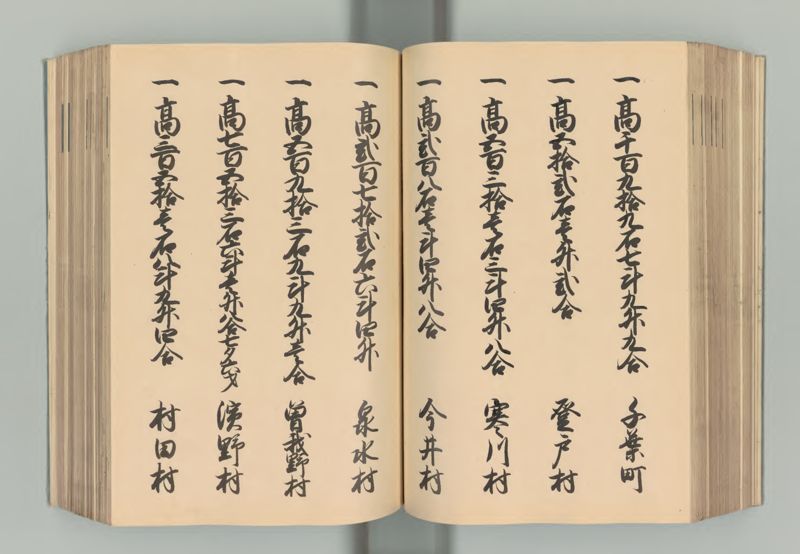 一高千百九拾九石七斗九升九合　千葉町
一高五拾弐石壱升弐合　登戸村
一高五百三拾壱石三斗四升八合　寒川村
一高弐百八石壱斗四升八合　今井村
一高弐百七拾弐石六斗四升　泉水村
一高五百九拾三石九斗九升壱合　曽我野村
一高七百五拾三石六斗壱升八合七夕六才　濱野村
一高三百五拾壱石八斗五升四合　村田村